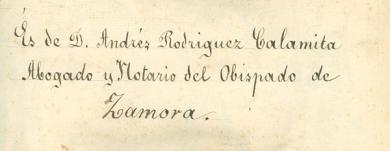 És de D. Andrés Rodriguez Calamita
Abogado y Notario del Obispado de
Zamora.